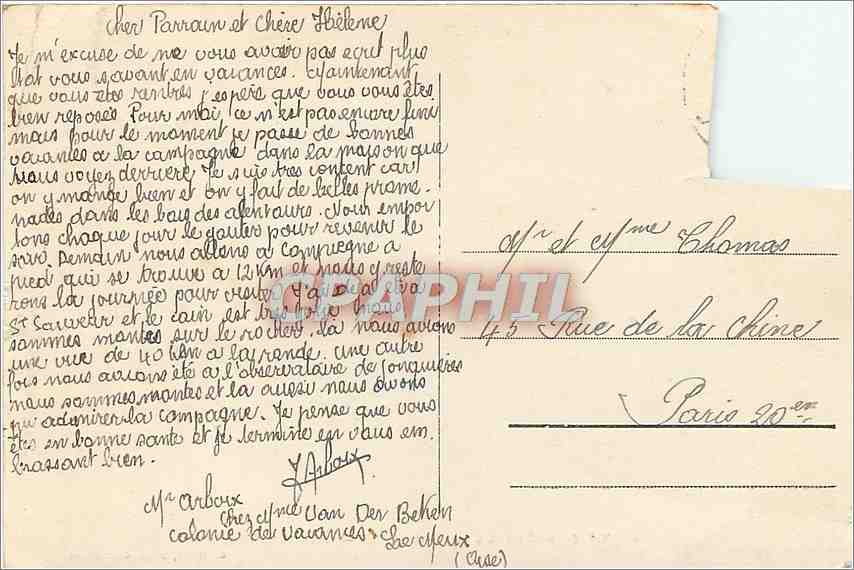 Cher Parrain et Chère Hélène
Je m'excuse de ne vous avoir pas ecrit plus
tot vous savant en vacances. Maintenant
que vous êtes rentres j'espere que vous vous êtes
bien reposés Pour moi, ce n'est pas encore fini
mais pour le moment je passe de bonnes
vacances a la campagne dans la maison que
vous voyez derriere Je suis tres content car
on y mange bien et on y fait de belles prome-
nades dans les bois des alentours. Nous empor
tons chaque jour le gouter pour revenir le
soir. Demain nous allons a Compiegne a
pied qui se trouve a 12 Km et nous y reste
rons la journée pour visiter J'ai deja été a
St Sauveur et le coin est tres joli nous
sommes montes sur le rocher. la nous avions
une vue de 40 km a la ronde. une autre
fois nous avions été a l'observatoire de jonquières
nous sommes montes et la aussi nous avons
pu admirer la campagne. Je pense que vous
êtes en bonne sante et je termine en vous em.
brassant bien.
J Arboix
Mr Arboix
chez Mme Van Der Beken
colonie de vacances. Le Meux
(Oise)
Mr et Mme Thomas
45 Rue de la Chine
Paris 20em
CPAPHIL